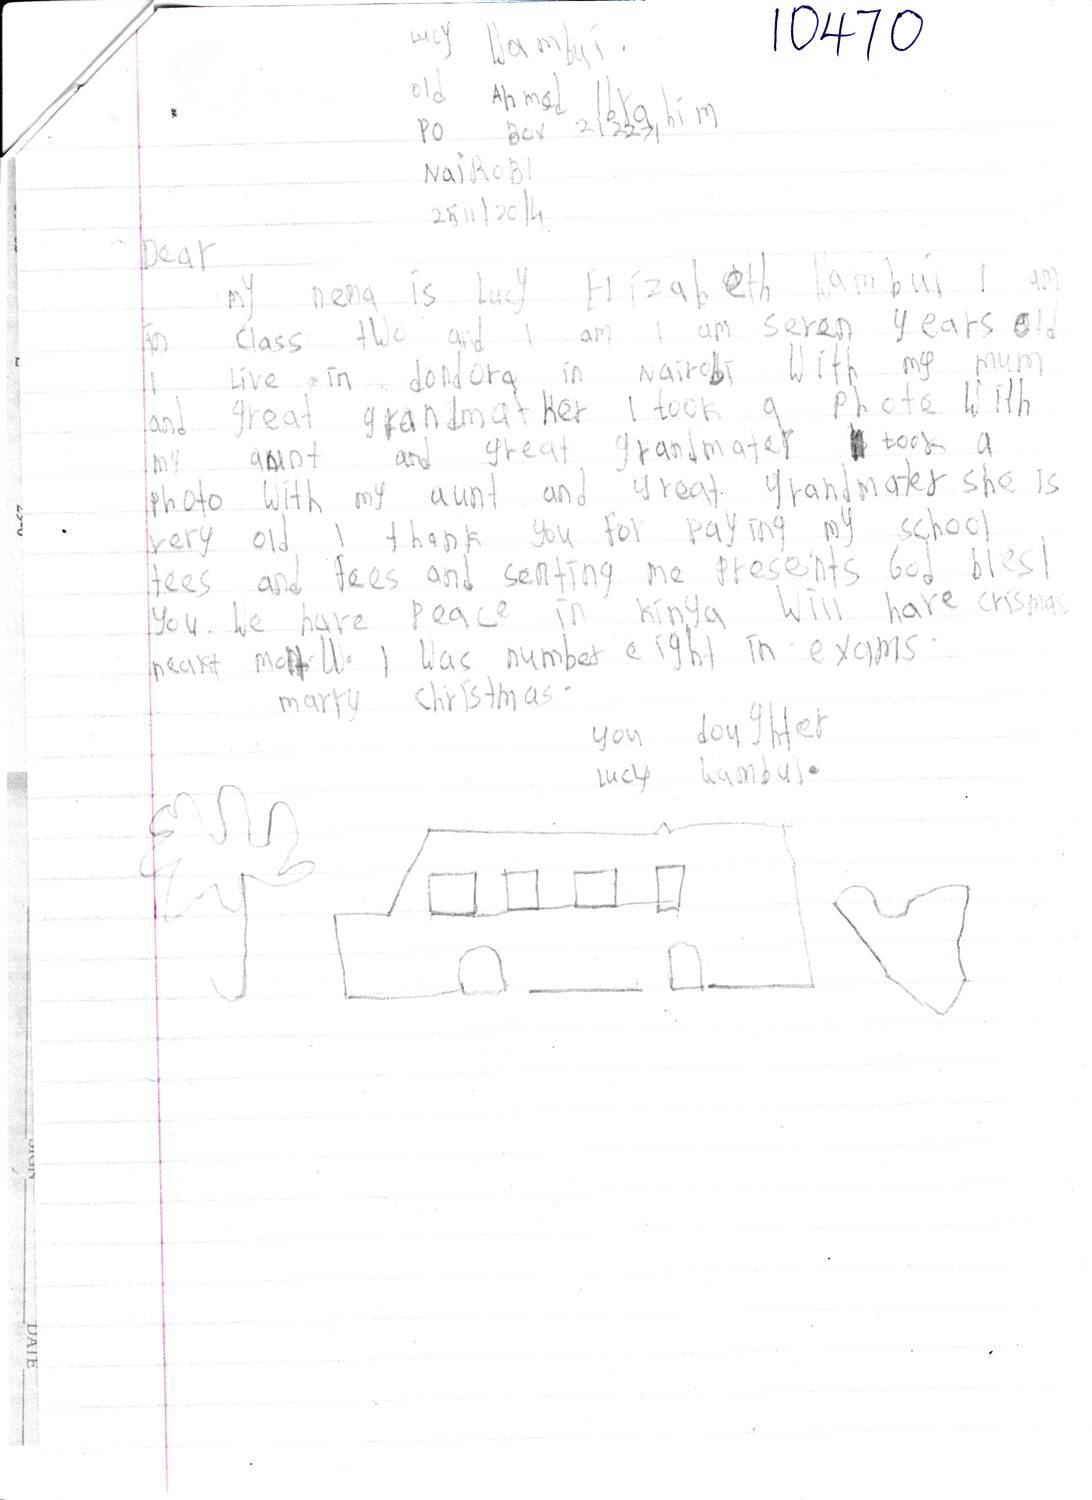 10470
Lucy Wambui.
Old Ahmed Ibrahim
PO Box
NaiROBI
25/11/2014
Dear
my nema is Lucy Elizabeth Wambui I am
in class two and I am I am seven years old
I Live in dondora in Nairobi With my mum
and great grandmather I took a photo With
my aunt and great grandmater took a
photo With my aunt and great grandmater she is
very old I thank you for paying my school
fees and fees and senting me presents God bless
you. We have peace in kinya Will have crismas
neaxt I Was number eight in exams.
marry christmas.
you doughter
Lucy Wambui.
SIGN
DATE